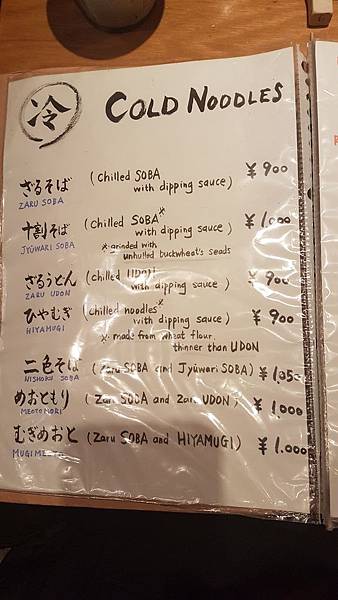 冷 COLD NOODLES
ざるそば (Chilled SOBA ¥900
ZARU SOBA with dipping sauce)
十割そば (Chilled SOBA※ ¥1,000
JYŪWARI SOBA with dipping sauce)
※ grinded with
unhulled buckwheat's seads
ざるうどん (Chilled UDON ¥900
ZARU UDON with dipping sauce)
ひやむぎ (Chilled noodles※ ¥900
HIYAMUGI with dipping sauce)
※ made from wheat flour.
thinner than UDON
二色そば (Zaru SOBA and Jyūwari SOBA) ¥1,050
NISHOKU SOBA
めおともり (Zaru SOBA and Zaru UDON) ¥1,000
MEOTOMORI
むぎめおと (Zaru SOBA and HIYAMUGI) ¥1,000
MUGIMEOTO